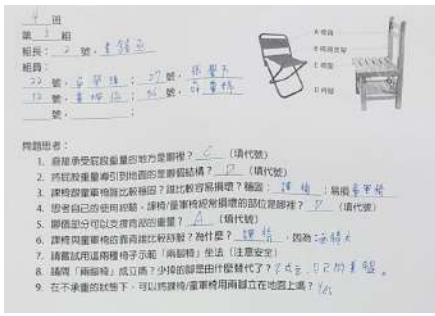 4 班
第 3 組
組長： 2 號，
組員：
22 號， ； 27 號，張
12 號， ； 號，
號， ；
A 椅背
C 椅面
D 椅腳
問題思考：
1. 直接承受屁股重量的地方是哪裡？ C （填代號）
2. 將屁股重量導引到地面的是哪個結構？ D （填代號）
3. 課椅跟童軍椅誰比較穩固？誰比較容易損壞？穩固： 課椅 ；易損 童軍椅
4. 思考自己的使用經驗，課椅/童軍椅經常損壞的部位是哪裡？ D （填代號）
5. 哪個部分可以支撐背部的重量？ A （填代號）
6. 課椅與童軍椅的靠背誰比較舒服？為什麼？ 課椅 ，因為
7. 請嘗試用這兩種椅子示範「兩腳椅」坐法（注意安全）
8. 請問「兩腳椅」成立嗎？少掉的腳是由什麼替代了？
9. 在不承重的狀態下，可以將課椅/童軍椅用兩腳立在地面上嗎？ Yes